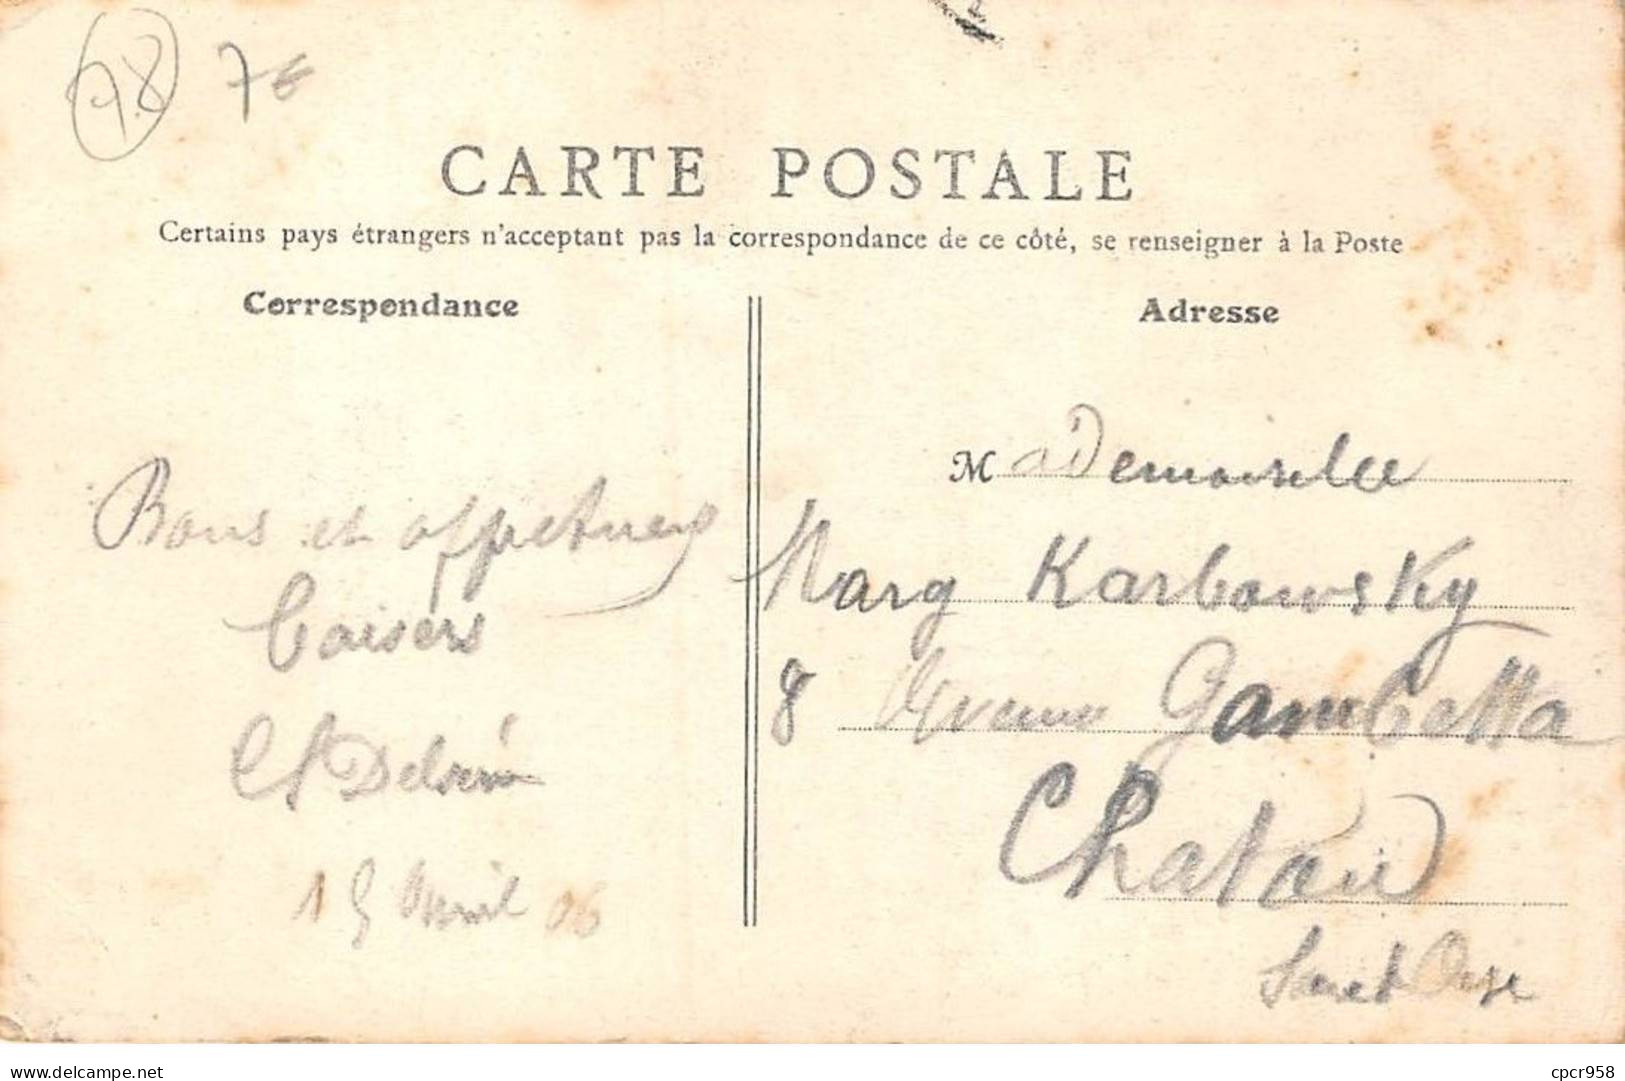 78 7€
CARTE POSTALE
Certains pays étrangers n'acceptant pas la correspondance de ce côté, se renseigner à la Poste
Correspondance
Bons et affectueux
Baisers
15 Avril 06
Adresse
Mademoiselle
Marg Karbowsky
8 Avenue Gambetta
Chatou
Seine et Oise
www.delcampe.net
cpcr958